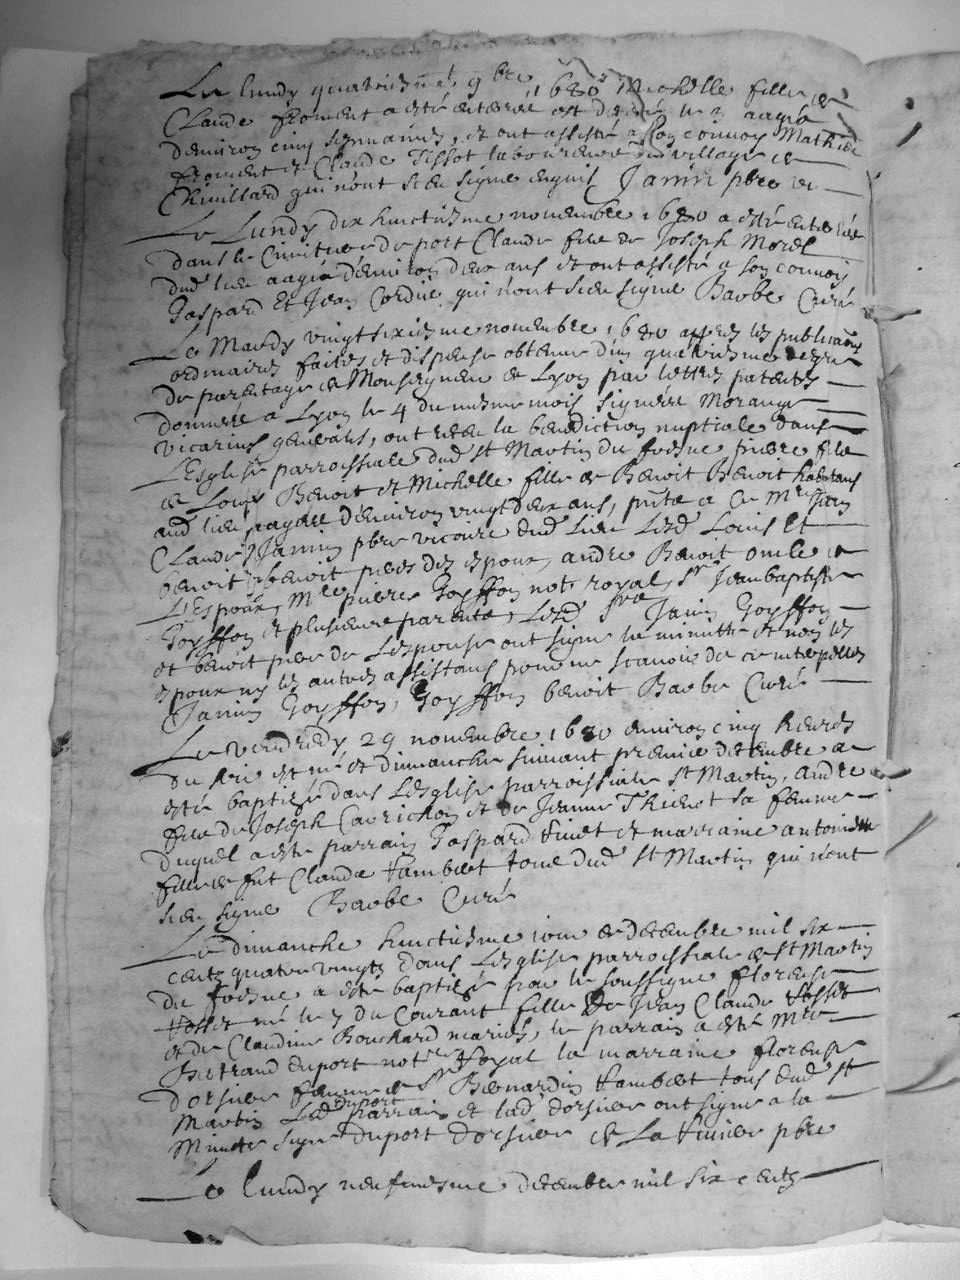 Le lundy quatriesme 9bre 1680 Michelle fille de
Claude froment a esté enterrée est decedé le 3 aagée
d'environ cinq sepmaines, et ont assisté a son convoy Mathieu
froment et Claude Tissot laboureurs du village de
Chivillard qui n'ont sceu signe enquis Janin pbre vi
Le Lundy dix huictiesme novembre 1680 a esté enterré
dans le Cimitiere de pott Claude filz de Joseph Morel
dud lieu aagé d'environ deux ans et ont assisté a son convoy
Gaspard Et Jean Cordié qui n'ont sceu signe Barbe Curé
Le Mardy vingt sixiesme novembre 1680 appres les publications
ordinaires faites et dispense obtenue d'un quatriesme degre
de parentage de Monseigneur de Lyon par lettres patentes
donnees a Lyon le 4 du mesme mois signeés Morange
vicarius generalis, ont receu la benediction nuptiale dans
L'Esglise parroissiale dud st Martin du fresne pierre filz
de Louys Benoit et Michelle fille de Benoit Benoit habitans
aud lieu aagée d'environ vingt deux ans, pnte a ce Mre Jean
Claude Janin pbre vicaire dud lieu Lesd Louis Et
benoit benoit peres des espoux, andre Benoit oncle de
L'Espoux, Mre pierre Goyffon notre royal, Sr Jean baptiste
Goyffon et plusieurs parents, Lesd Srs Janin Goyffon
et benoit pere de L'espouse ont signe la minutte et non les
espoux ny les autres assistans pour ne scavoir de ce interpellés
Janin Goyffon, Goyffon benoit Barbe Curé
Le vendredy 29 novembre 1680 environ cinq heures
du soir est né et dimanche suivant premier decembre a
esté baptizé dans L'esglise parroissiale st Martin, andre
filz de Joseph Cavrichon et de Jeanne Thienot sa femme
duquel a esté parrain Gaspard Vinet et marraine antoinette
fille de fut Claude Hambert tous dud st Martin qui n'ont
sceu signe Barbe Curé
Le dimanche huictiesme jour de decembre mil six
centz quatre vingtz dans L'esglise parroissiale de st Martin
du fresne a esté baptizé par le soussigne florense
Tosset née le 7 du Courant fille de Jean Claude Tosset
et de Claudine Bouchard mariés, le parrain a esté Mre
Bertrand duport notre Royal la marraine florense
dorsier femme de Sr Bernardin Hambert tous dud st
Martin Led duport parrain et lad dorsier ont signe a la
Minute signe duport dorsier de La pbre
Le lundy neufviesme decembre mil six centz